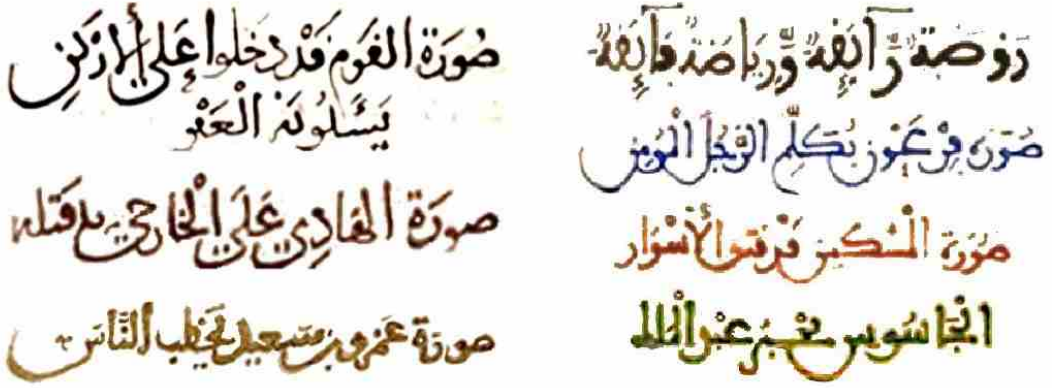 رَوْضَة رَّآيِقَةٌ وَّرِيَاضَةٌ فَايِقَةٌ
صُورَة فِرْعَوْن يُكَلِّم الرَّجُلَ الْمُومِن
صُورَة الأسْوَار
الْجَاسُوس يخبر عبد الملك
صُورَة القَوم قَدْ دَخَلوا عَلى
يَسْـَٔلُونَهُ الْعَفْو
صورَة الهَادِي عَلَى الْخَارجي قتله
صورَة عَمْرو بن سَعيد يَخطب النَّاس